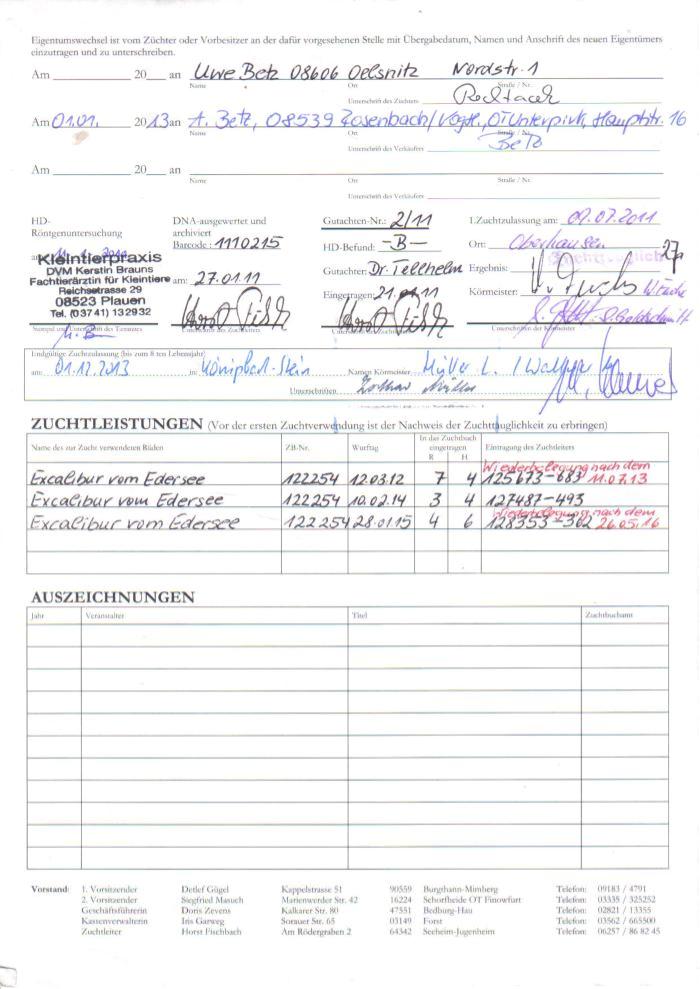 Eigentumswechsel ist vom Züchter oder Vorbesitzer an der dafür vorgesehenen Stelle mit Übergabedatum, Namen und Anschrift des neuen Eigentümers
einzutragen und zu unterschreiben.
Am 20 an Uwe Betz 08606 Oelsnitz Nordstr. 1
Name Ort Straße / Nr.
Unterschrift des Züchters
Am 01.01. 2013 an A. Betz, 08539 Rosenbach/Vogtl., OT Unterpirk, Hauptstr. 16
Name Ort Straße / Nr.
Unterschrift des Verkäufers Betz
Am 20 an
Name Ort Straße / Nr.
Unterschrift des Verkäufers
HD- DNA-ausgewertet und Gutachten-Nr.: 2/11 1.Zuchtzulassung am: 09.07.2011
Röntgenuntersuchung archiviert
Barcode : 1110215 HD-Befund: -B- Ort: Oberhausen
Kleintierpraxis
DVM Kerstin Brauns
Fachtierärztin für Kleintiere am: 27.01.11 Gutachter: Dr. Tellhelm Ergebnis:
Reichsstrasse 29
08523 Plauen Eingetragen: 21.01.11 Körmeister:
Tel. (03741) 132932
Stempel und Unterschrift des Tierarztes Unterschrift des Zuchtleiters Unterschrift des Zuchtleiters Unterschriften der Körmeister
Endgültige Zuchtzulassung (bis zum 8 ten Lebensjahr)
am: 01.12.2013 in: Königbach-Stein Namen Körmeister: Müller L. /
Unterschriften Lothar Müller
ZUCHTLEISTUNGEN (Vor der ersten Zuchtverwendung ist der Nachweis der Zuchttauglichkeit zu erbringen)
Name des zur Zucht verwendeten Rüden ZB-Nr. Wurftag In das Zuchtbuch eingetragen R H Eintragung des Zuchtleiters
Wiederbelegung nach dem
Excalibur vom Edersee 122254 12.03.12 7 4 125673-683 11.07.13
Excalibur vom Edersee 122254 10.02.14 3 4 127487-493
Wiederbelegung nach dem
Excalibur vom Edersee 122254 28.01.15 4 6 128353-362 26.05.16
AUSZEICHNUNGEN
Jahr Veranstalter Titel Zuchtbuchamt
Vorstand: 1. Vorsitzender Detlef Gügel Kappelstrasse 51 90559 Burgthann-Mimberg Telefon: 09183 / 4791
2. Vorsitzender Siegfried Masuch Marienwerder Str. 42 16224 Schorfheide OT Finowfurt Telefon: 03335 / 325252
Geschäftsführerin Doris Zevens Kalkarer Str. 80 47551 Bedburg-Hau Telefon: 02821 / 13355
Kassenverwalterin Iris Garweg Sorauer Str. 65 03149 Forst Telefon: 03562 / 665500
Zuchtleiter Horst Fischbach Am Rödergraben 2 64342 Seeheim-Jugenheim Telefon: 06257 / 86 82 45